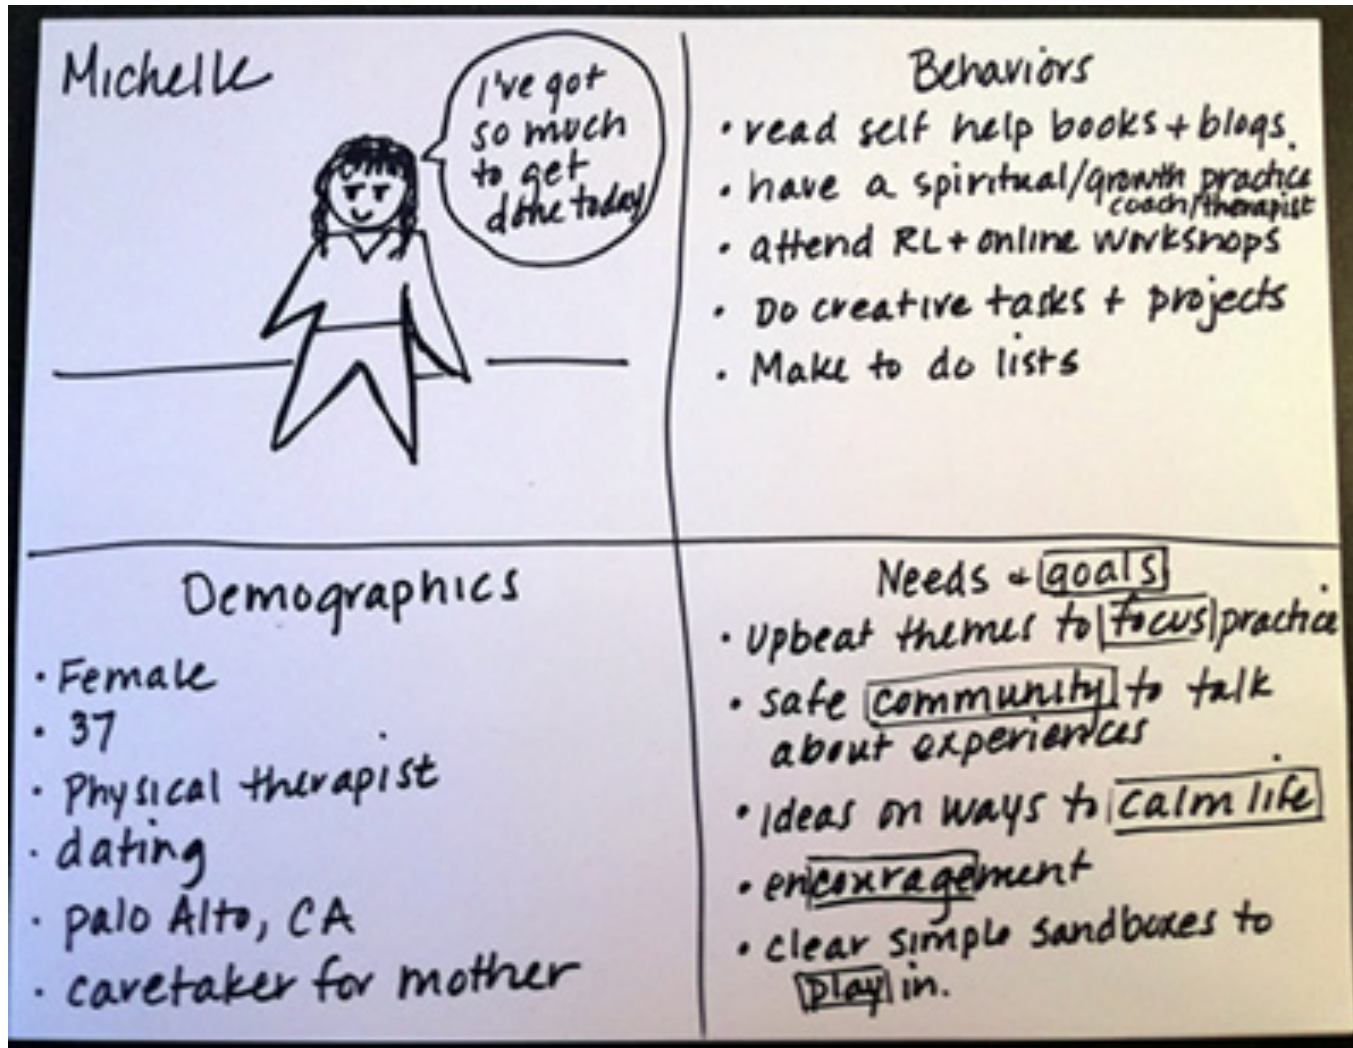 Michelle
I've got
so much
to get
done today
Behaviors
• read self help books + blogs.
• have a spiritual/growth practice
coach/therapist
• attend RL + online workshops
• Do creative tasks + projects
• Make to do lists
Demographics
• Female
• 37
• Physical therapist
• dating
• palo Alto, CA
• caretaker for mother
Needs + goals
• Upbeat themes to focus practice
• safe community to talk
about experiences
• Ideas on ways to calm life
• encouragement
• clear simple sandboxes to
play in.